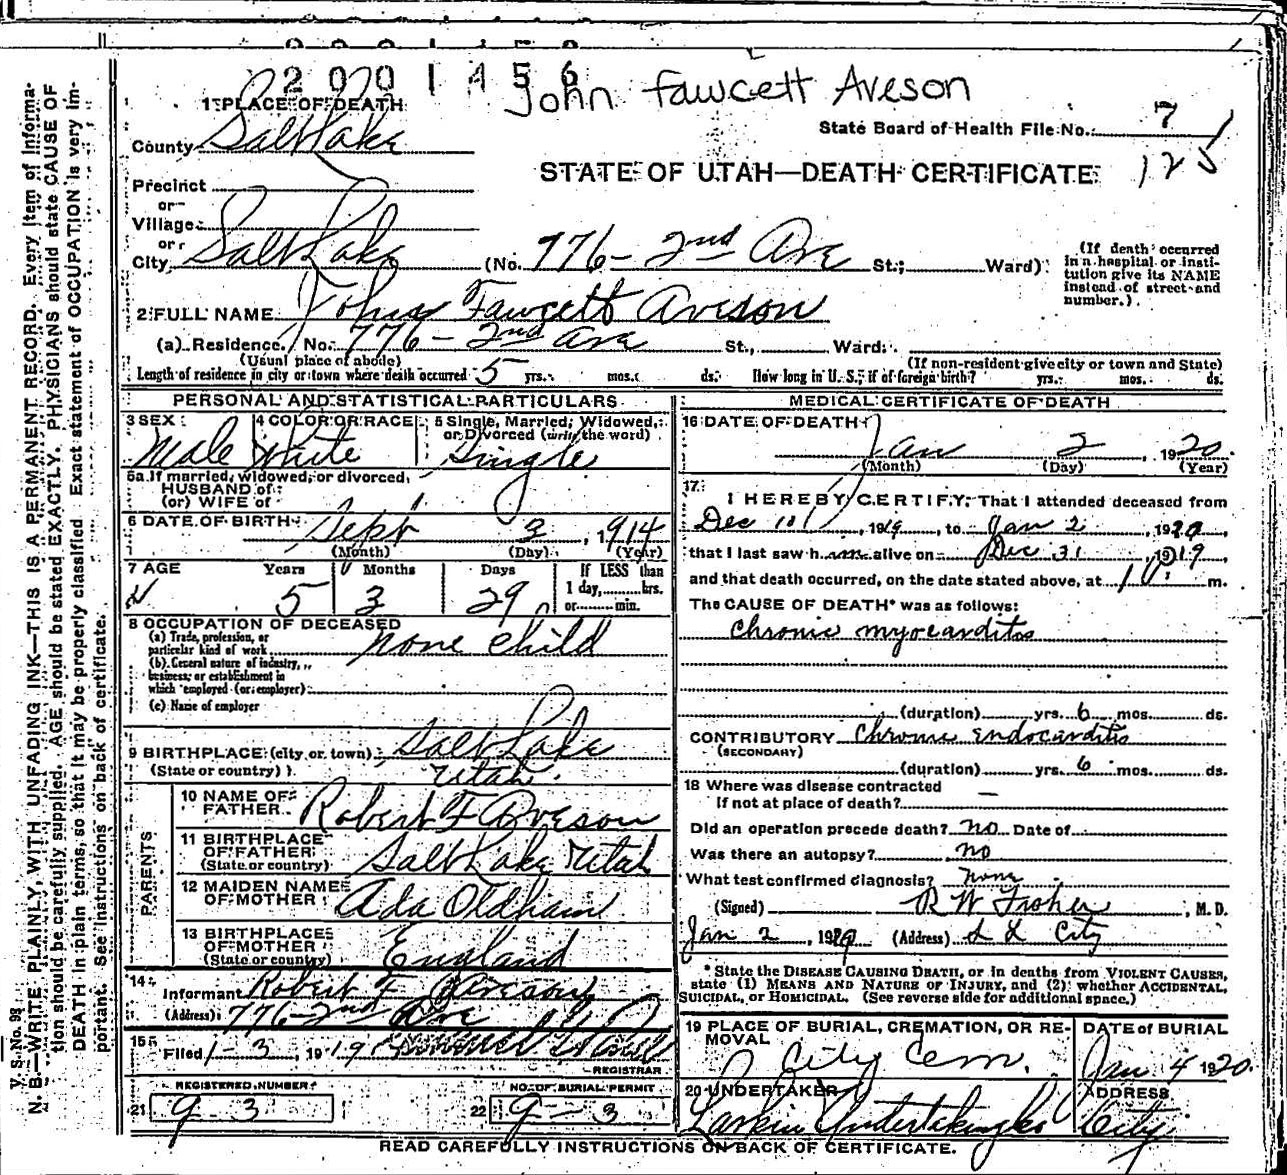 2001456
John Fawcett Aveson
1 PLACE OF DEATH
State Board of Health File No. 7
County Salt Lake
125
STATE OF UTAH—DEATH CERTIFICATE
Precinct
or
Village
or
City Salt Lake (No. 776 - 2nd Ave St.; Ward)
(If death occurred in a hospital or institution give its NAME instead of street and number.)
2 FULL NAME John Fawcett Aveson
(a) Residence. No. 776 - 2nd Ave St., Ward.
(Usual place of abode) (If non-resident give city or town and State)
Length of residence in city or town where death occurred 5 yrs. mos. ds. How long in U. S., if of foreign birth? yrs. mos. ds.
PERSONAL AND STATISTICAL PARTICULARS
3 SEX Male
4 COLOR OR RACE White
5 Single, Married, Widowed, or Divorced (write the word) Single
5a If married, widowed, or divorced,
HUSBAND of
(or) WIFE of
6 DATE OF BIRTH Sept 3, 1914
(Month) (Day) (Year)
7 AGE Years Months Days If LESS than
5 3 29 1 day, hrs.
or min.
8 OCCUPATION OF DECEASED
(a) Trade, profession, or
particular kind of work none child
(b) General nature of industry,
business, or establishment in
which employed (or employer)
(c) Name of employer
9 BIRTHPLACE (city or town) Salt Lake
(State or country) Utah
PARENTS
10 NAME OF FATHER Robert F Aveson
11 BIRTHPLACE OF FATHER (State or country) Salt Lake Utah
12 MAIDEN NAME OF MOTHER Ada Oldham
13 BIRTHPLACE OF MOTHER (State or country) England
14 Informant Robert F Aveson
(Address) 776 - 2nd Ave
15 Filed 1-3, 191
REGISTRAR
REGISTERED NUMBER
21 9-3
NO. OF BURIAL PERMIT
22 9-3
MEDICAL CERTIFICATE OF DEATH
16 DATE OF DEATH Jan 2, 1920
(Month) (Day) (Year)
17 I HEREBY CERTIFY, That I attended deceased from
Dec 10, 1919, to Jan 2, 1920
that I last saw h im alive on Dec 31, 1919
and that death occurred, on the date stated above, at m.
The CAUSE OF DEATH* was as follows:
Chronic myocarditis
(duration) yrs. 6 mos. ds.
CONTRIBUTORY Chronic Endocarditis
(SECONDARY)
(duration) yrs. 6 mos. ds.
18 Where was disease contracted
If not at place of death? —
Did an operation precede death? no Date of
Was there an autopsy? no
What test confirmed diagnosis? none
(Signed) R W , M. D.
Jan 2, 19 (Address) S L City
* State the DISEASE CAUSING DEATH, or in deaths from VIOLENT CAUSES,
state (1) MEANS AND NATURE OF INJURY, and (2) whether ACCIDENTAL,
SUICIDAL, or HOMICIDAL. (See reverse side for additional space.)
19 PLACE OF BURIAL, CREMATION, OR REMOVAL City Cem.
DATE of BURIAL Jan 4 1920.
20 UNDERTAKER Larkin Undertaking Co
ADDRESS City
READ CAREFULLY INSTRUCTIONS ON BACK OF CERTIFICATE.
V. S. No. 98
N. B.—WRITE PLAINLY, WITH UNFADING INK—THIS IS A PERMANENT RECORD. Every item of informa-
tion should be carefully supplied. AGE should be stated EXACTLY. PHYSICIANS should state CAUSE OF
DEATH in plain terms, so that it may be properly classified. Exact statement of OCCUPATION is very im-
portant. See instructions on back of certificate.